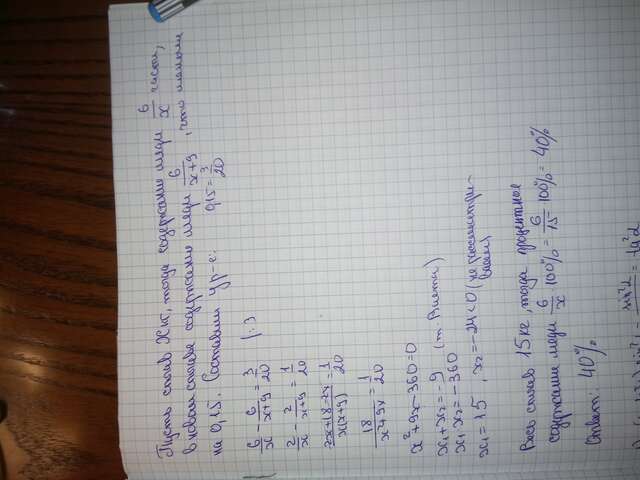 Пусть сплав x кг, тогда содержание меди 6/x части,
в новом сплаве содержание меди 6/(x+9), что меньше
на 0,15. Составим ур-е: 0,15 = 3/20
6/x - 6/(x+9) = 3/20 |:3
2/x - 2/(x+9) = 1/20
(2x+18-2x)/(x(x+9)) = 1/20
18/(x²+9x) = 1/20
x²+9x-360=0
x₁+x₂=-9 (т Виета)
x₁·x₂=-360
x₁=15, x₂=-24<0 (не рассматри-
ваем)
Весь сплав 15 кг, тогда процентное
содержание меди 6/x · 100% = 6/15 · 100% = 40%
Ответ: 40%